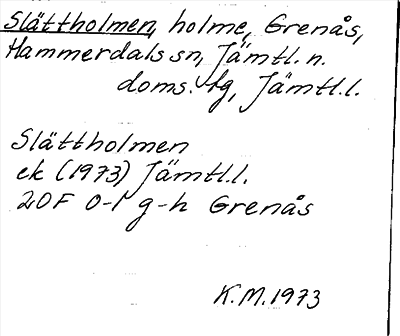 Slättholmen, holme, Grenås,
Hammerdals sn, Jämtl. n.
doms. tg, Jämtl. l.
Slättholmen
ek (1973) Jämtl. l.
20F 0-1 g-h Grenås
K.M. 1973